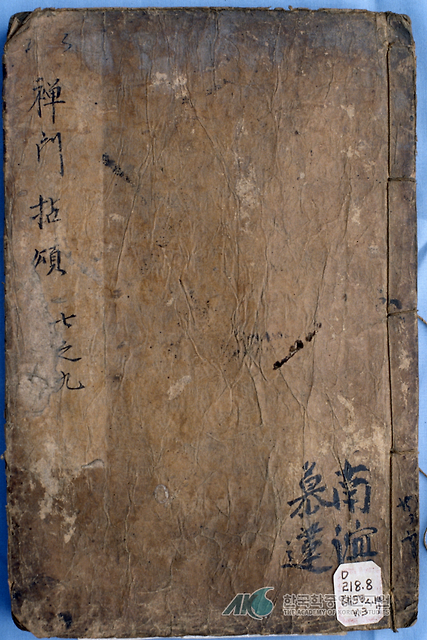 禪門拈頌 七之九
南誼
慕蓮
D
218.8
v.3
한국학중앙연구원
THE ACADEMY OF KOREAN STUDIES